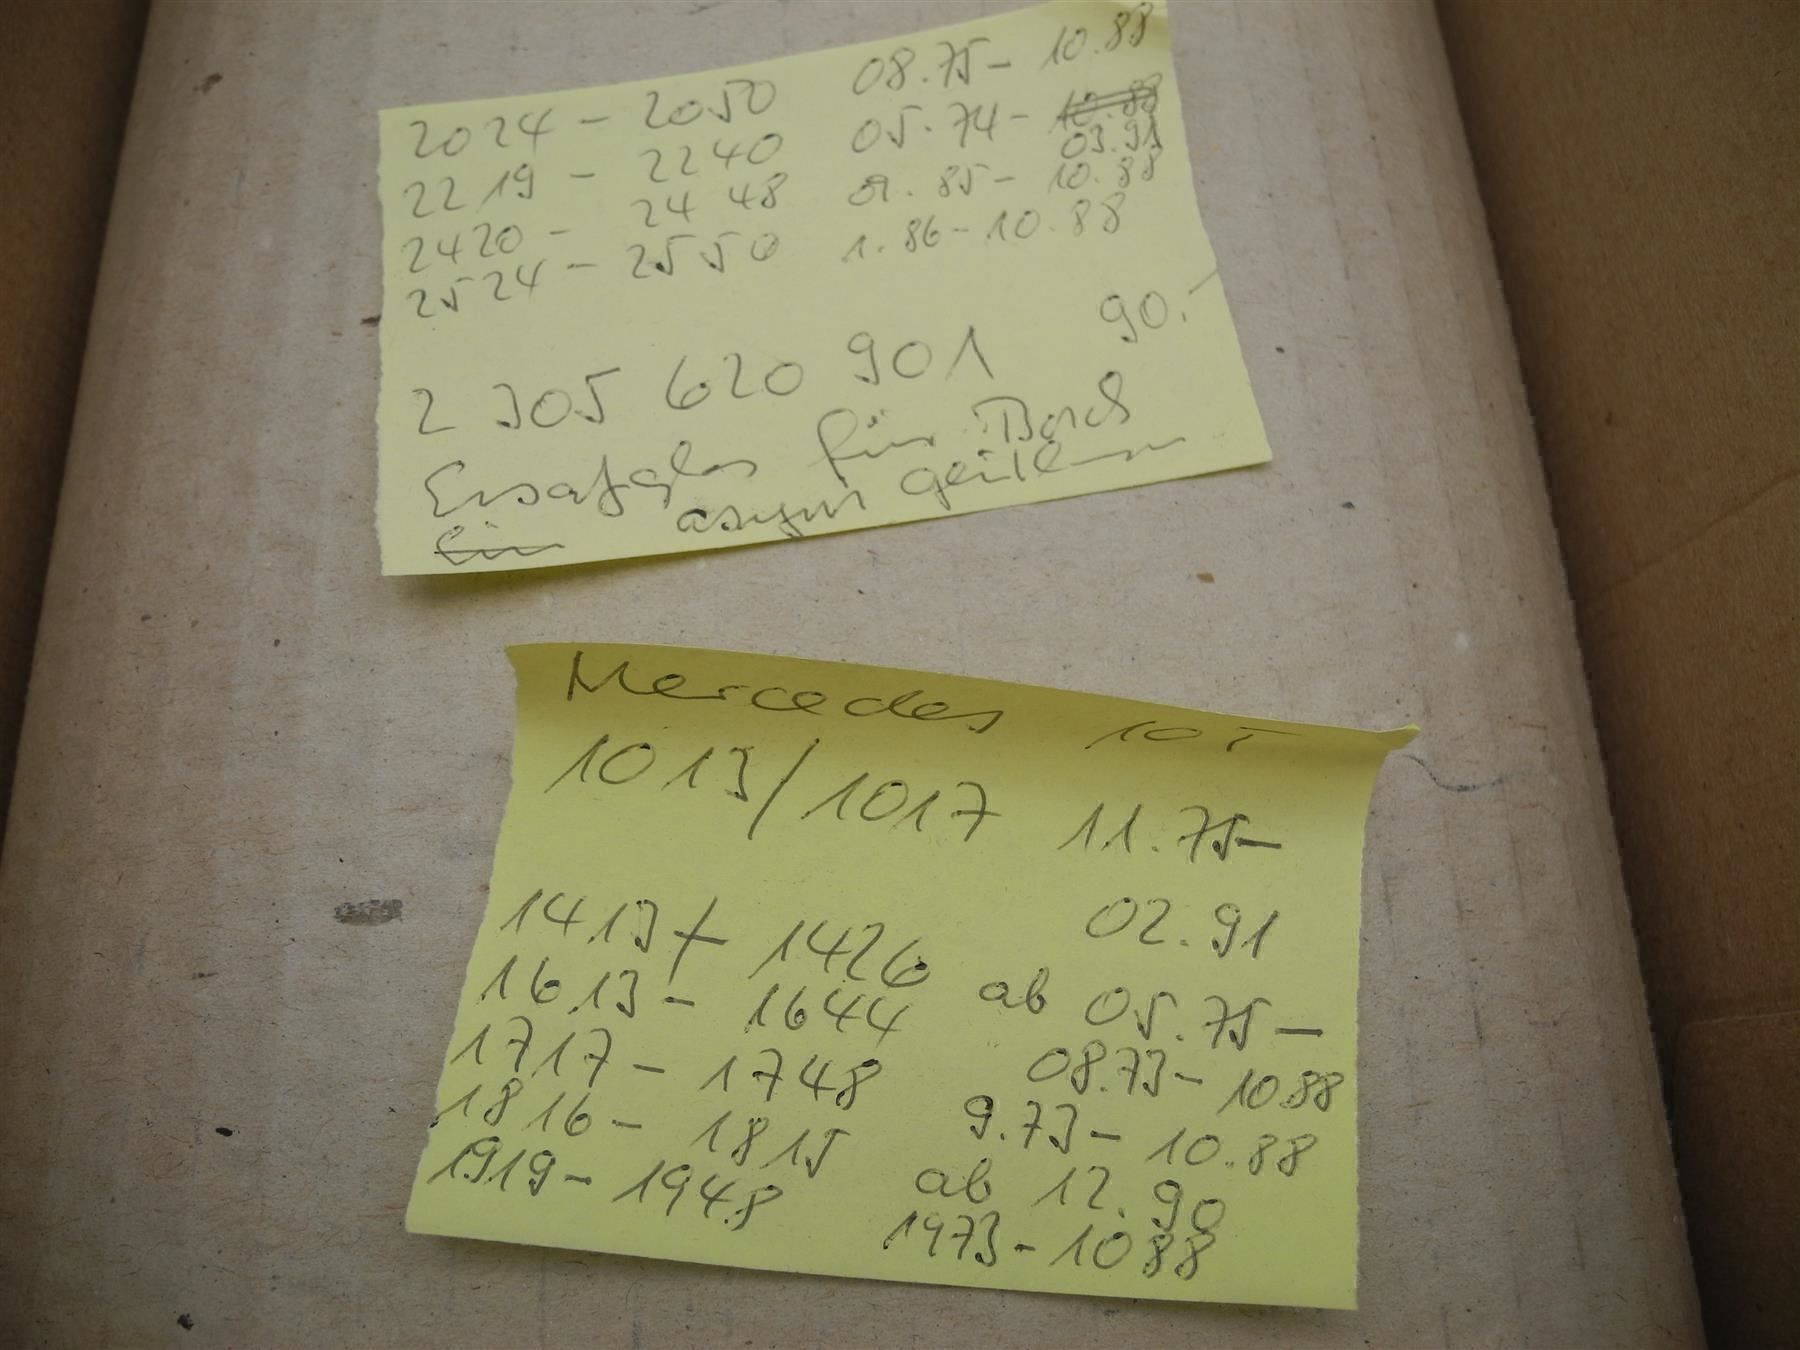 2024 - 2050 08.75 - 10.88
2219 - 2240 05.74 - 10.88
03.91
2420 - 2448 01.85 - 10.88
2524 - 2550 1.86 - 10.88
90.-
2 305 620 901
Ersatzglas für Bosch
für asym geteilt
Mercedes 10T
1013/1017 11.75-
02.91
1413 - 1426 ab 05.75-
1613 - 1644 08.73 - 10.88
1717 - 1748 9.73 - 10.88
1816 - 1815 ab 12.90
1919 - 1948 1973 - 1088